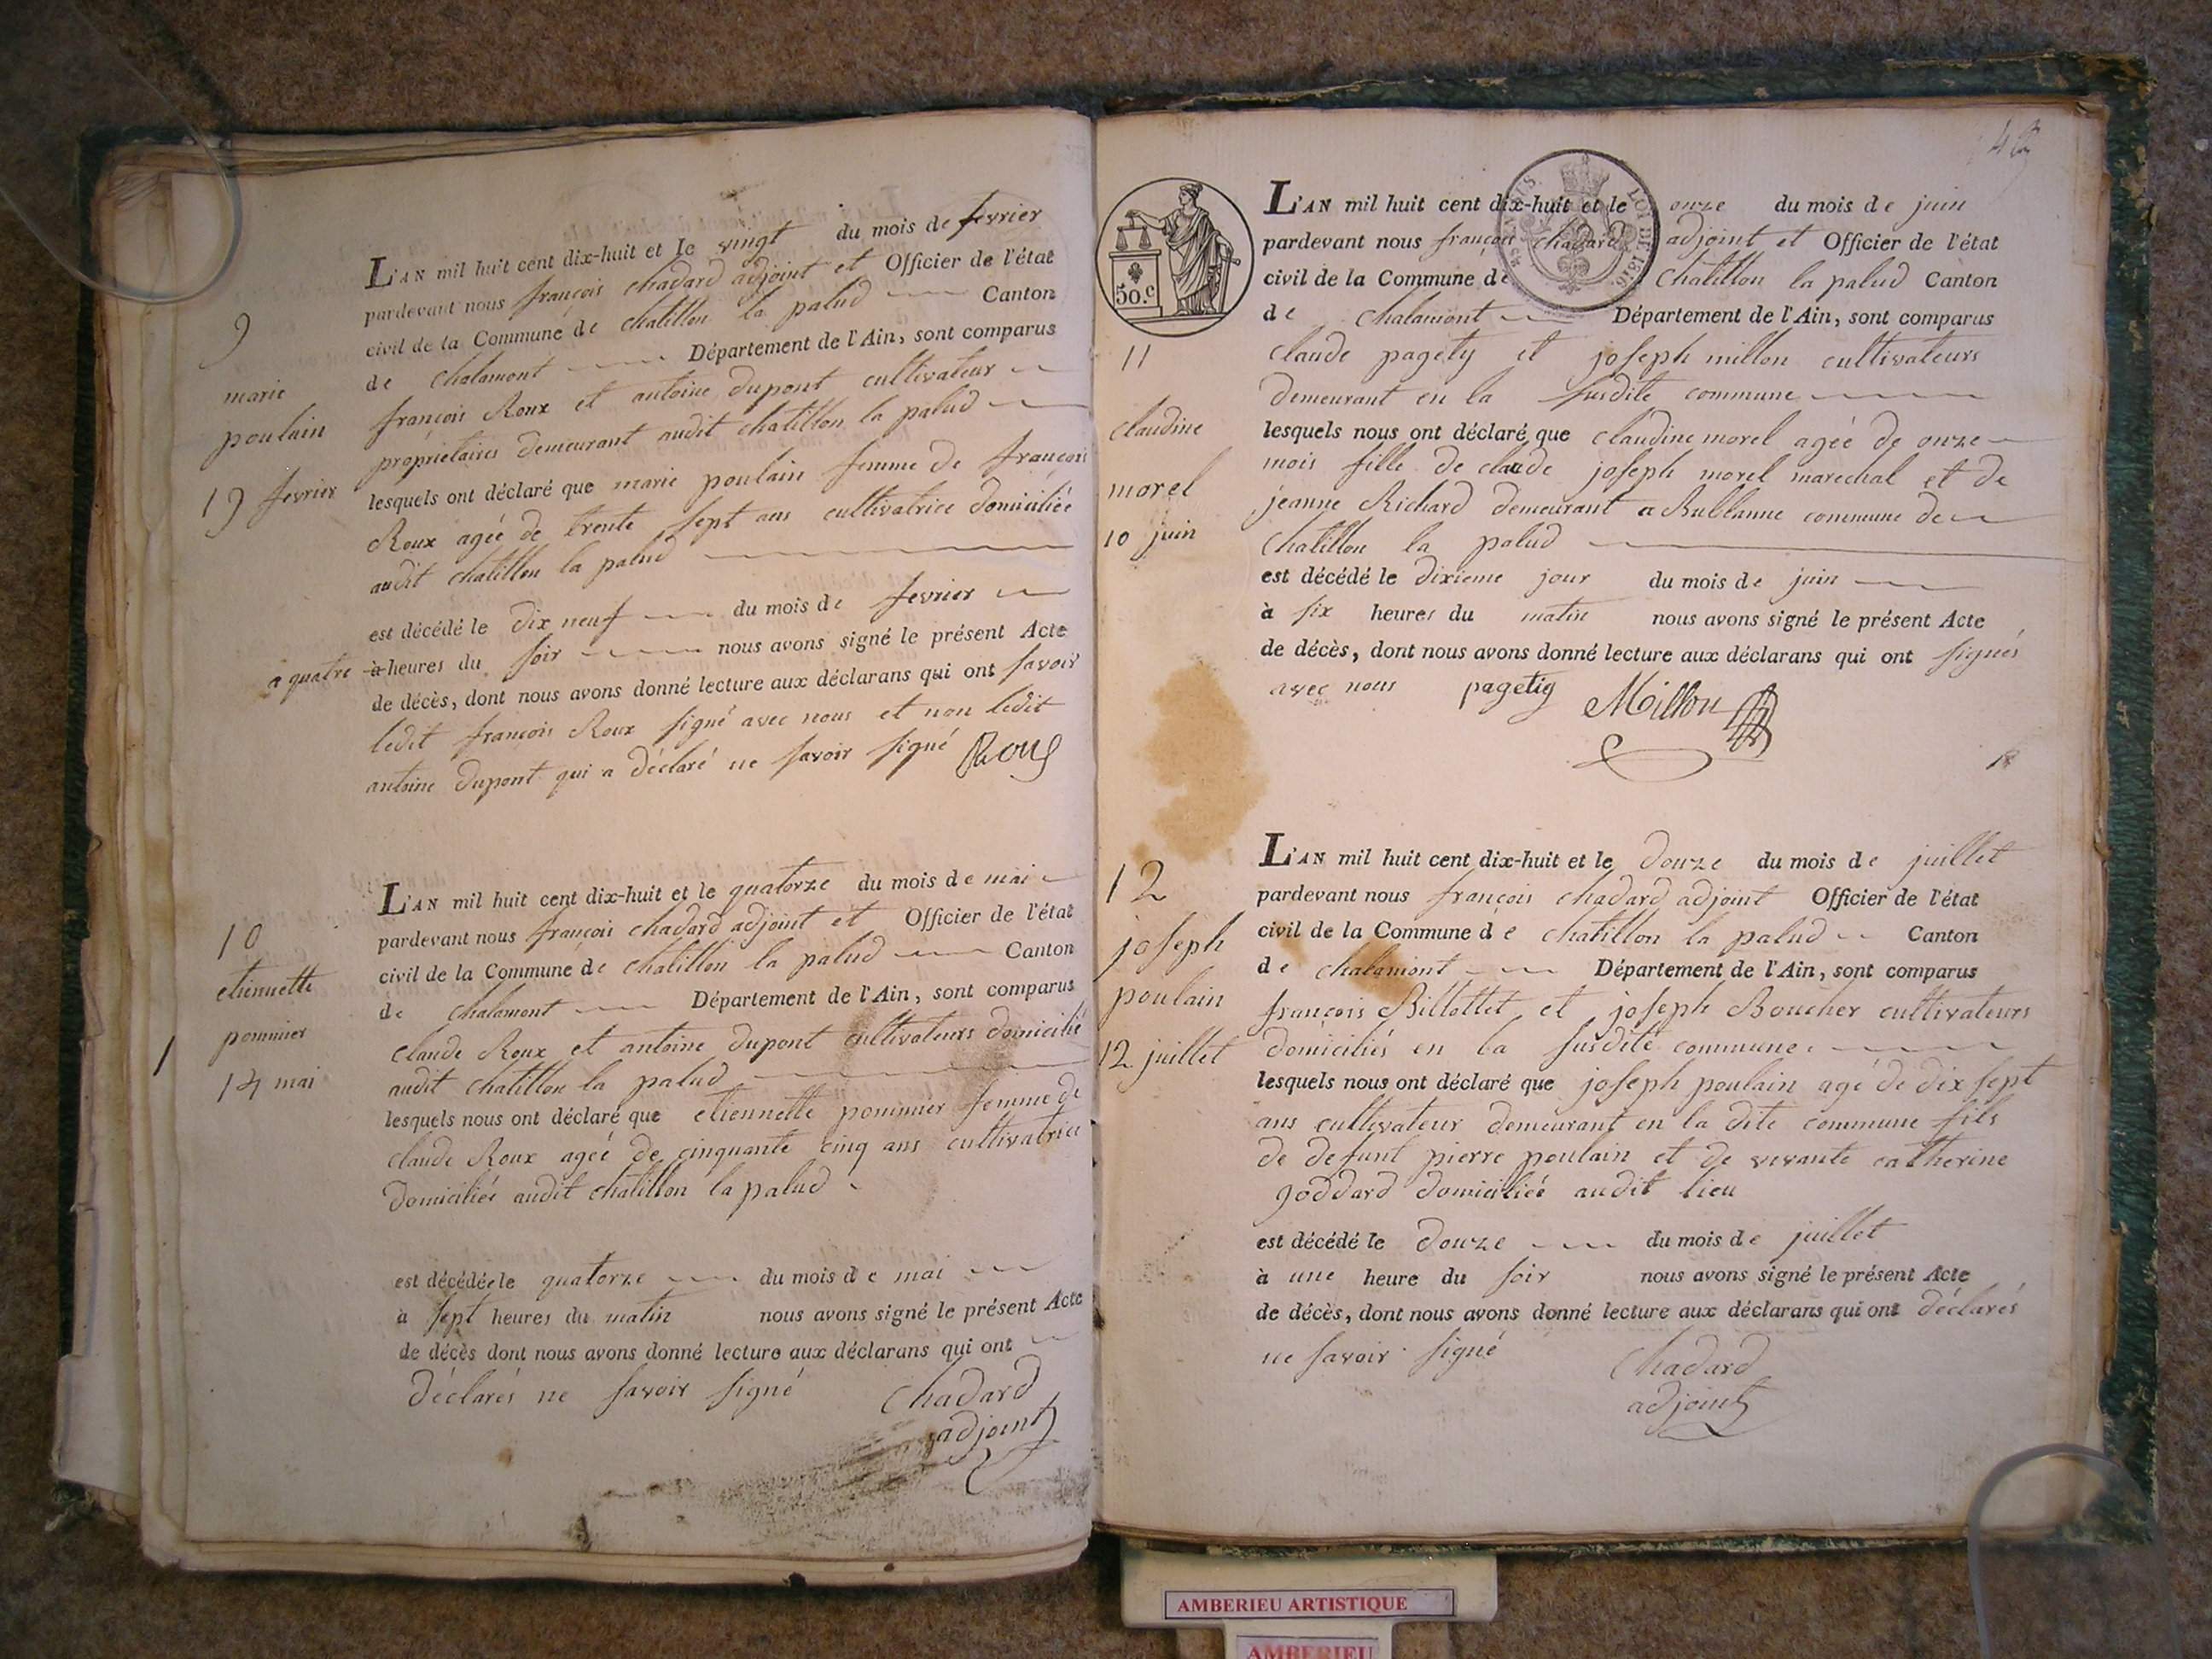 9
marie
poulain
19 fevrier
L'AN mil huit cent dix-huit et le vingt du mois de fevrier
pardevant nous françois chadard adjoint et Officier de l'état
civil de la Commune de chatillon la palud Canton
de chalamont Département de l'Ain, sont comparus
françois Roux et antoine dupont cultivateur
proprietaires demeurant audit chatillon la palud
lesquels ont déclaré que marie poulain femme de françois
Roux agéé de trente sept ans cultivatrice domiciliée
audit chatillon la palud
est décédé le dix neuf du mois de fevrier
a quatre à heures du soir nous avons signé le présent Acte
de décès, dont nous avons donné lecture aux déclarans qui ont savoir
ledit françois Roux signé avec nous et non ledit
antoine dupont qui a déclaré ne savoir signé Roux
10
etiennette
pommier
14 mai
L'AN mil huit cent dix-huit et le quatorze du mois de mai
pardevant nous françois chadard adjoint et Officier de l'état
civil de la Commune de chatillon la palud Canton
de chalamont Département de l'Ain, sont comparus
claude Roux et antoine dupont cultivateurs domicilié
audit chatillon la palud
lesquels nous ont déclaré que etiennette pommier femme de
claude Roux agéé de cinquante cinq ans cultivatrice
domiciliée audit chatillon la palud
est décédée le quatorze du mois de mai
à sept heures du matin nous avons signé le présent Acte
de décès dont nous avons donné lecture aux déclarans qui ont
déclarés ne savoir signé chadard
adjoint
50.c
LOI DE 1816
11
claudine
morel
10 juin
L'AN mil huit cent dix-huit et le onze du mois de juin
pardevant nous françois chadard adjoint et Officier de l'état
civil de la Commune de chatillon la palud Canton
de chalamont Département de l'Ain, sont comparus
claude pagety et joseph millon cultivateurs
demeurant en la susdite commune
lesquels nous ont déclaré que claudine morel agéé de onze
mois fille de claude joseph morel marechal et de
jeanne Richard demeurant a Bublanne commune de
chatillon la palud
est décédé le dixieme jour du mois de juin
à six heures du matin nous avons signé le présent Acte
de décès, dont nous avons donné lecture aux déclarans qui ont signés
avec nous pagetiy Millon
12
joseph
poulain
12 juillet
L'AN mil huit cent dix-huit et le douze du mois de juillet
pardevant nous françois chadard adjoint Officier de l'état
civil de la Commune de chatillon la palud Canton
de chalamont Département de l'Ain, sont comparus
françois Billottet et joseph Boucher cultivateurs
domiciliés en la susdité commune
lesquels nous ont déclaré que joseph poulain agé de dix sept
ans cultivateur demeurant en la dite commune fils
de defunt pierre poulain et de vivante catherine
goddard domiciliée audit lieu
est décédé le douze du mois de juillet
à une heure du soir nous avons signé le présent Acte
de décès, dont nous avons donné lecture aux déclarans qui ont déclarés
ne savoir signé chadard
adjoint
AMBERIEU ARTISTIQUE
AMBERIEU